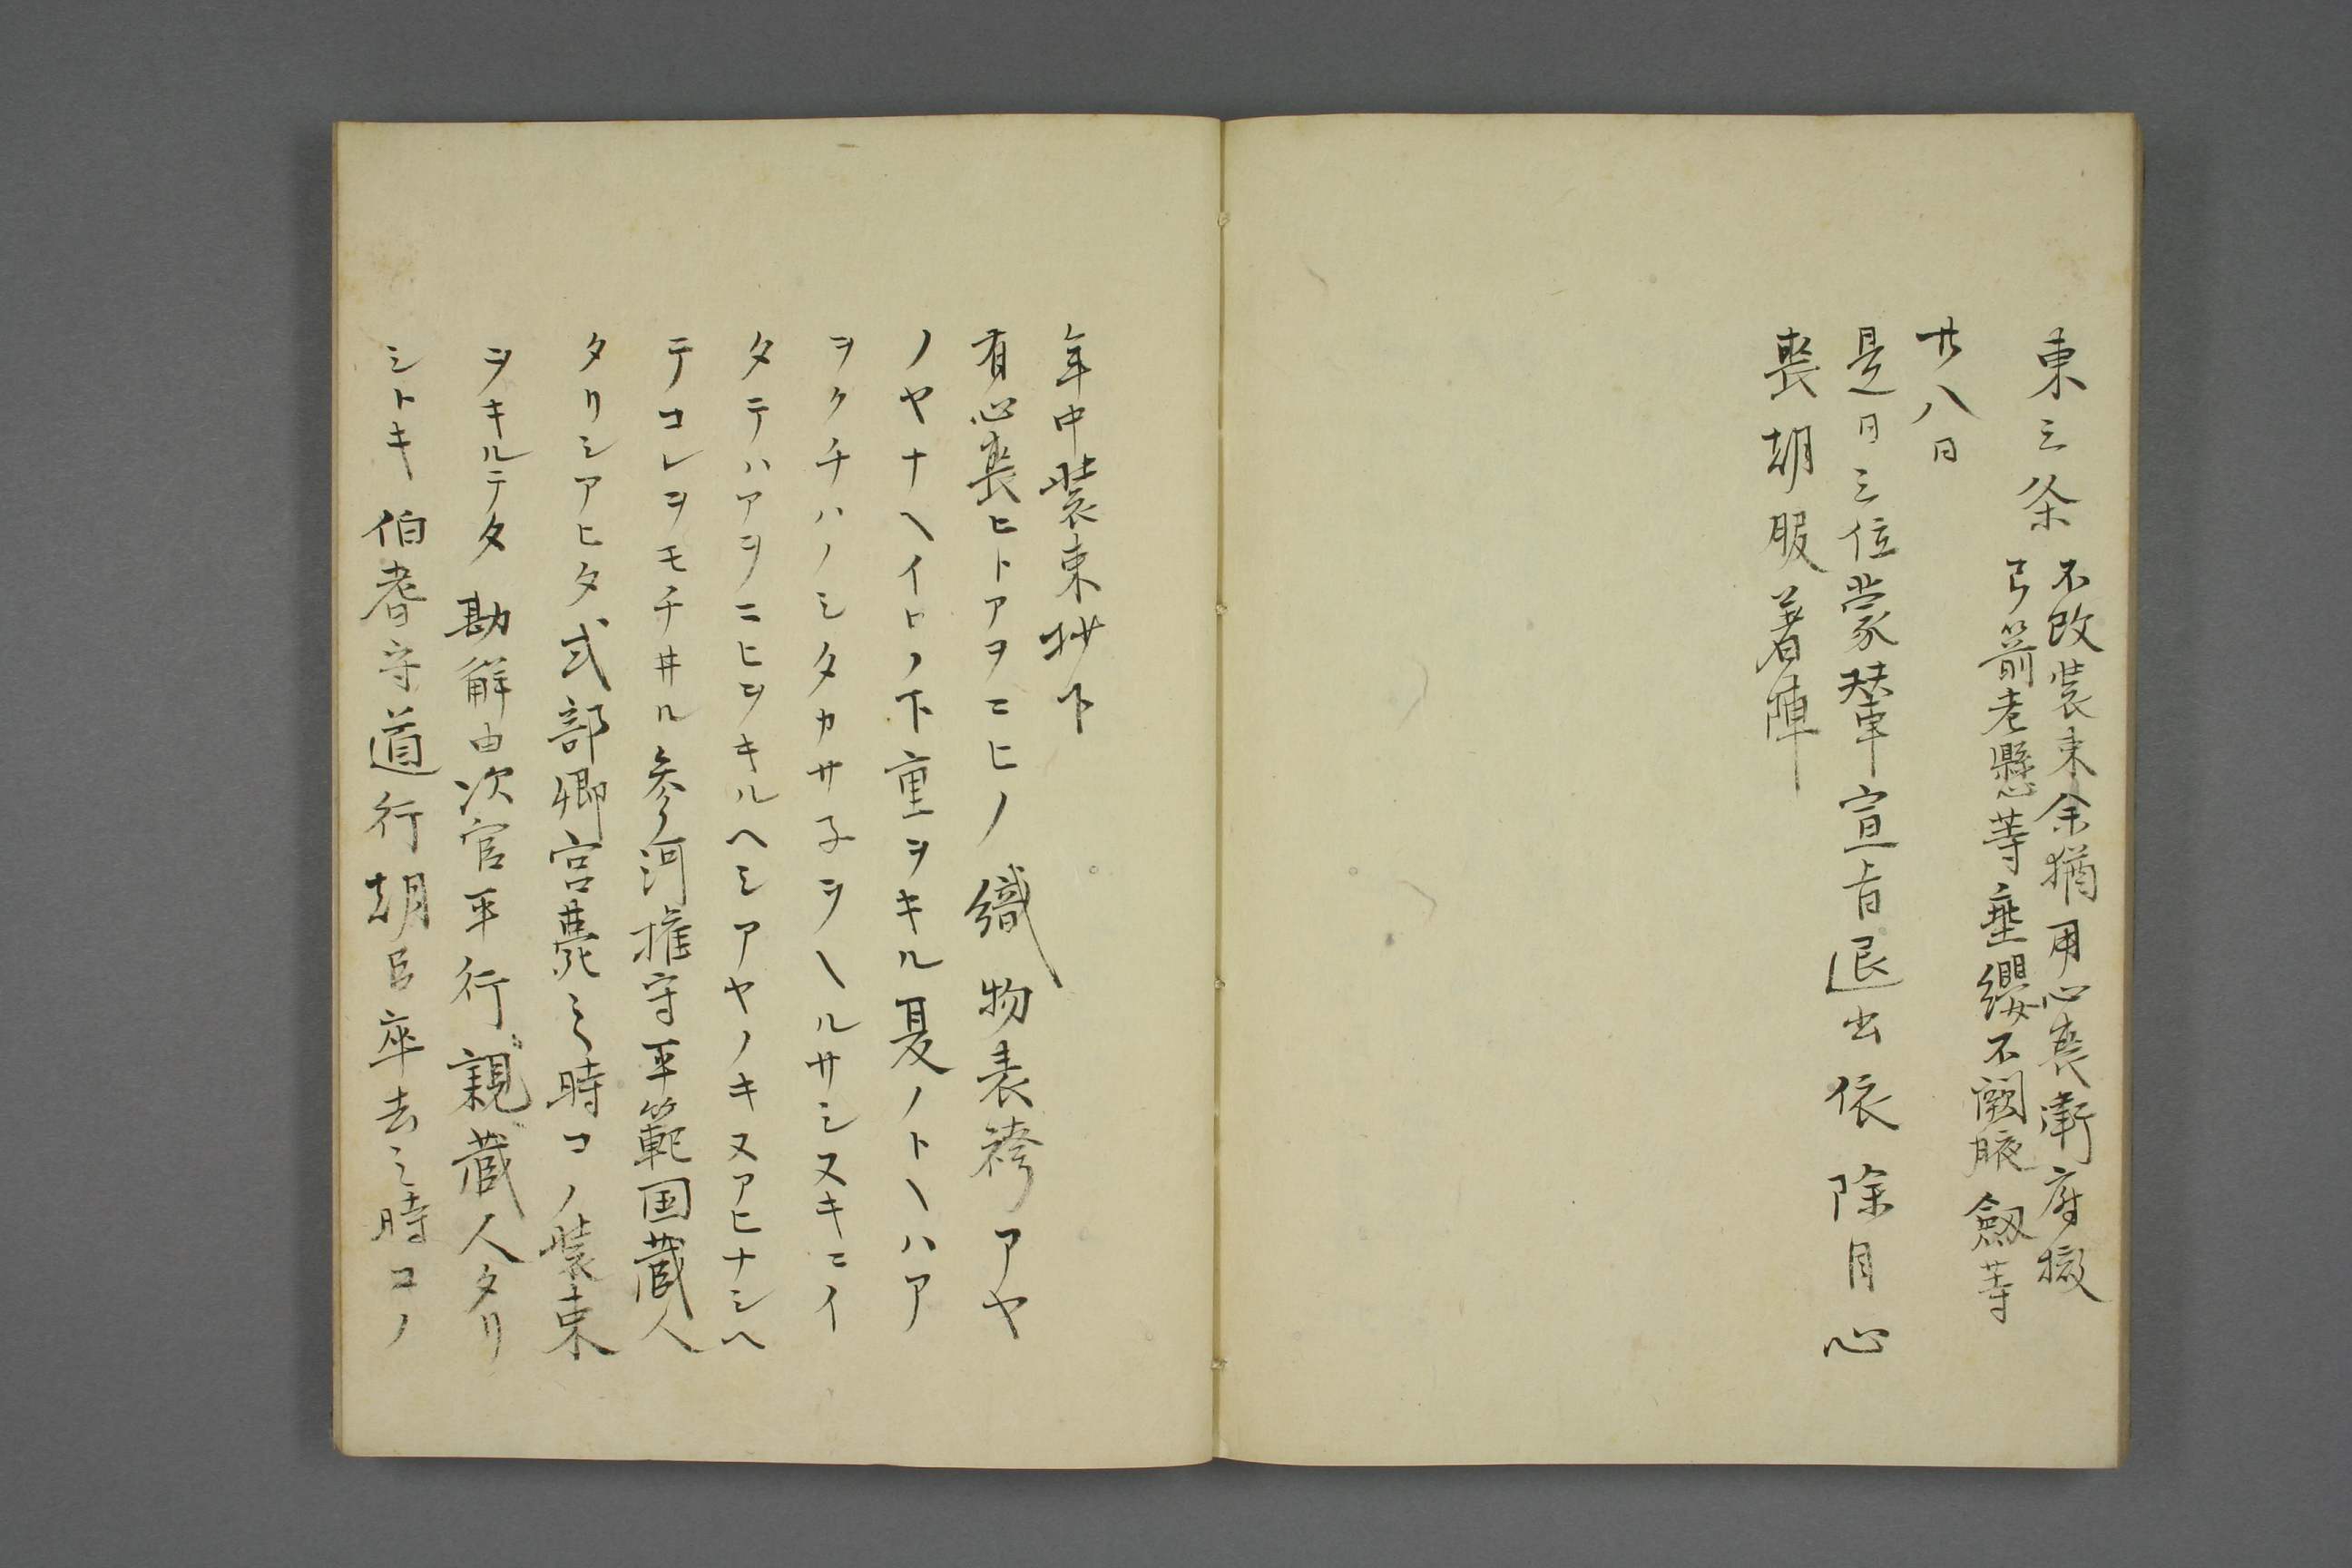 東三条 不改装束余猶用心喪衛府撤
弓箭老懸等垂纓不闕腋劔等
廿八日
是日三位蒙輦車宣旨退出依除目心
喪胡服着陣
年中装束抄下
有心喪ヒトアヲニヒノ織物表袴アヤ
ノヤナヘイロノ下重ヲキル夏ノトヘハア
ヲクチハノシタカサ子ヲヘルサシヌキニイ
タテハアヲニヒヲキルヘシアヤノキヌアヒナシヘ
テコレヲモチヰル参河権守平範国蔵人
タリシアヒタ式部卿宮薨之時コノ装束
ヲキルテタ勘解由次官平行親蔵人タリ
シトキ伯耆守道行朝臣卒去之時コノ